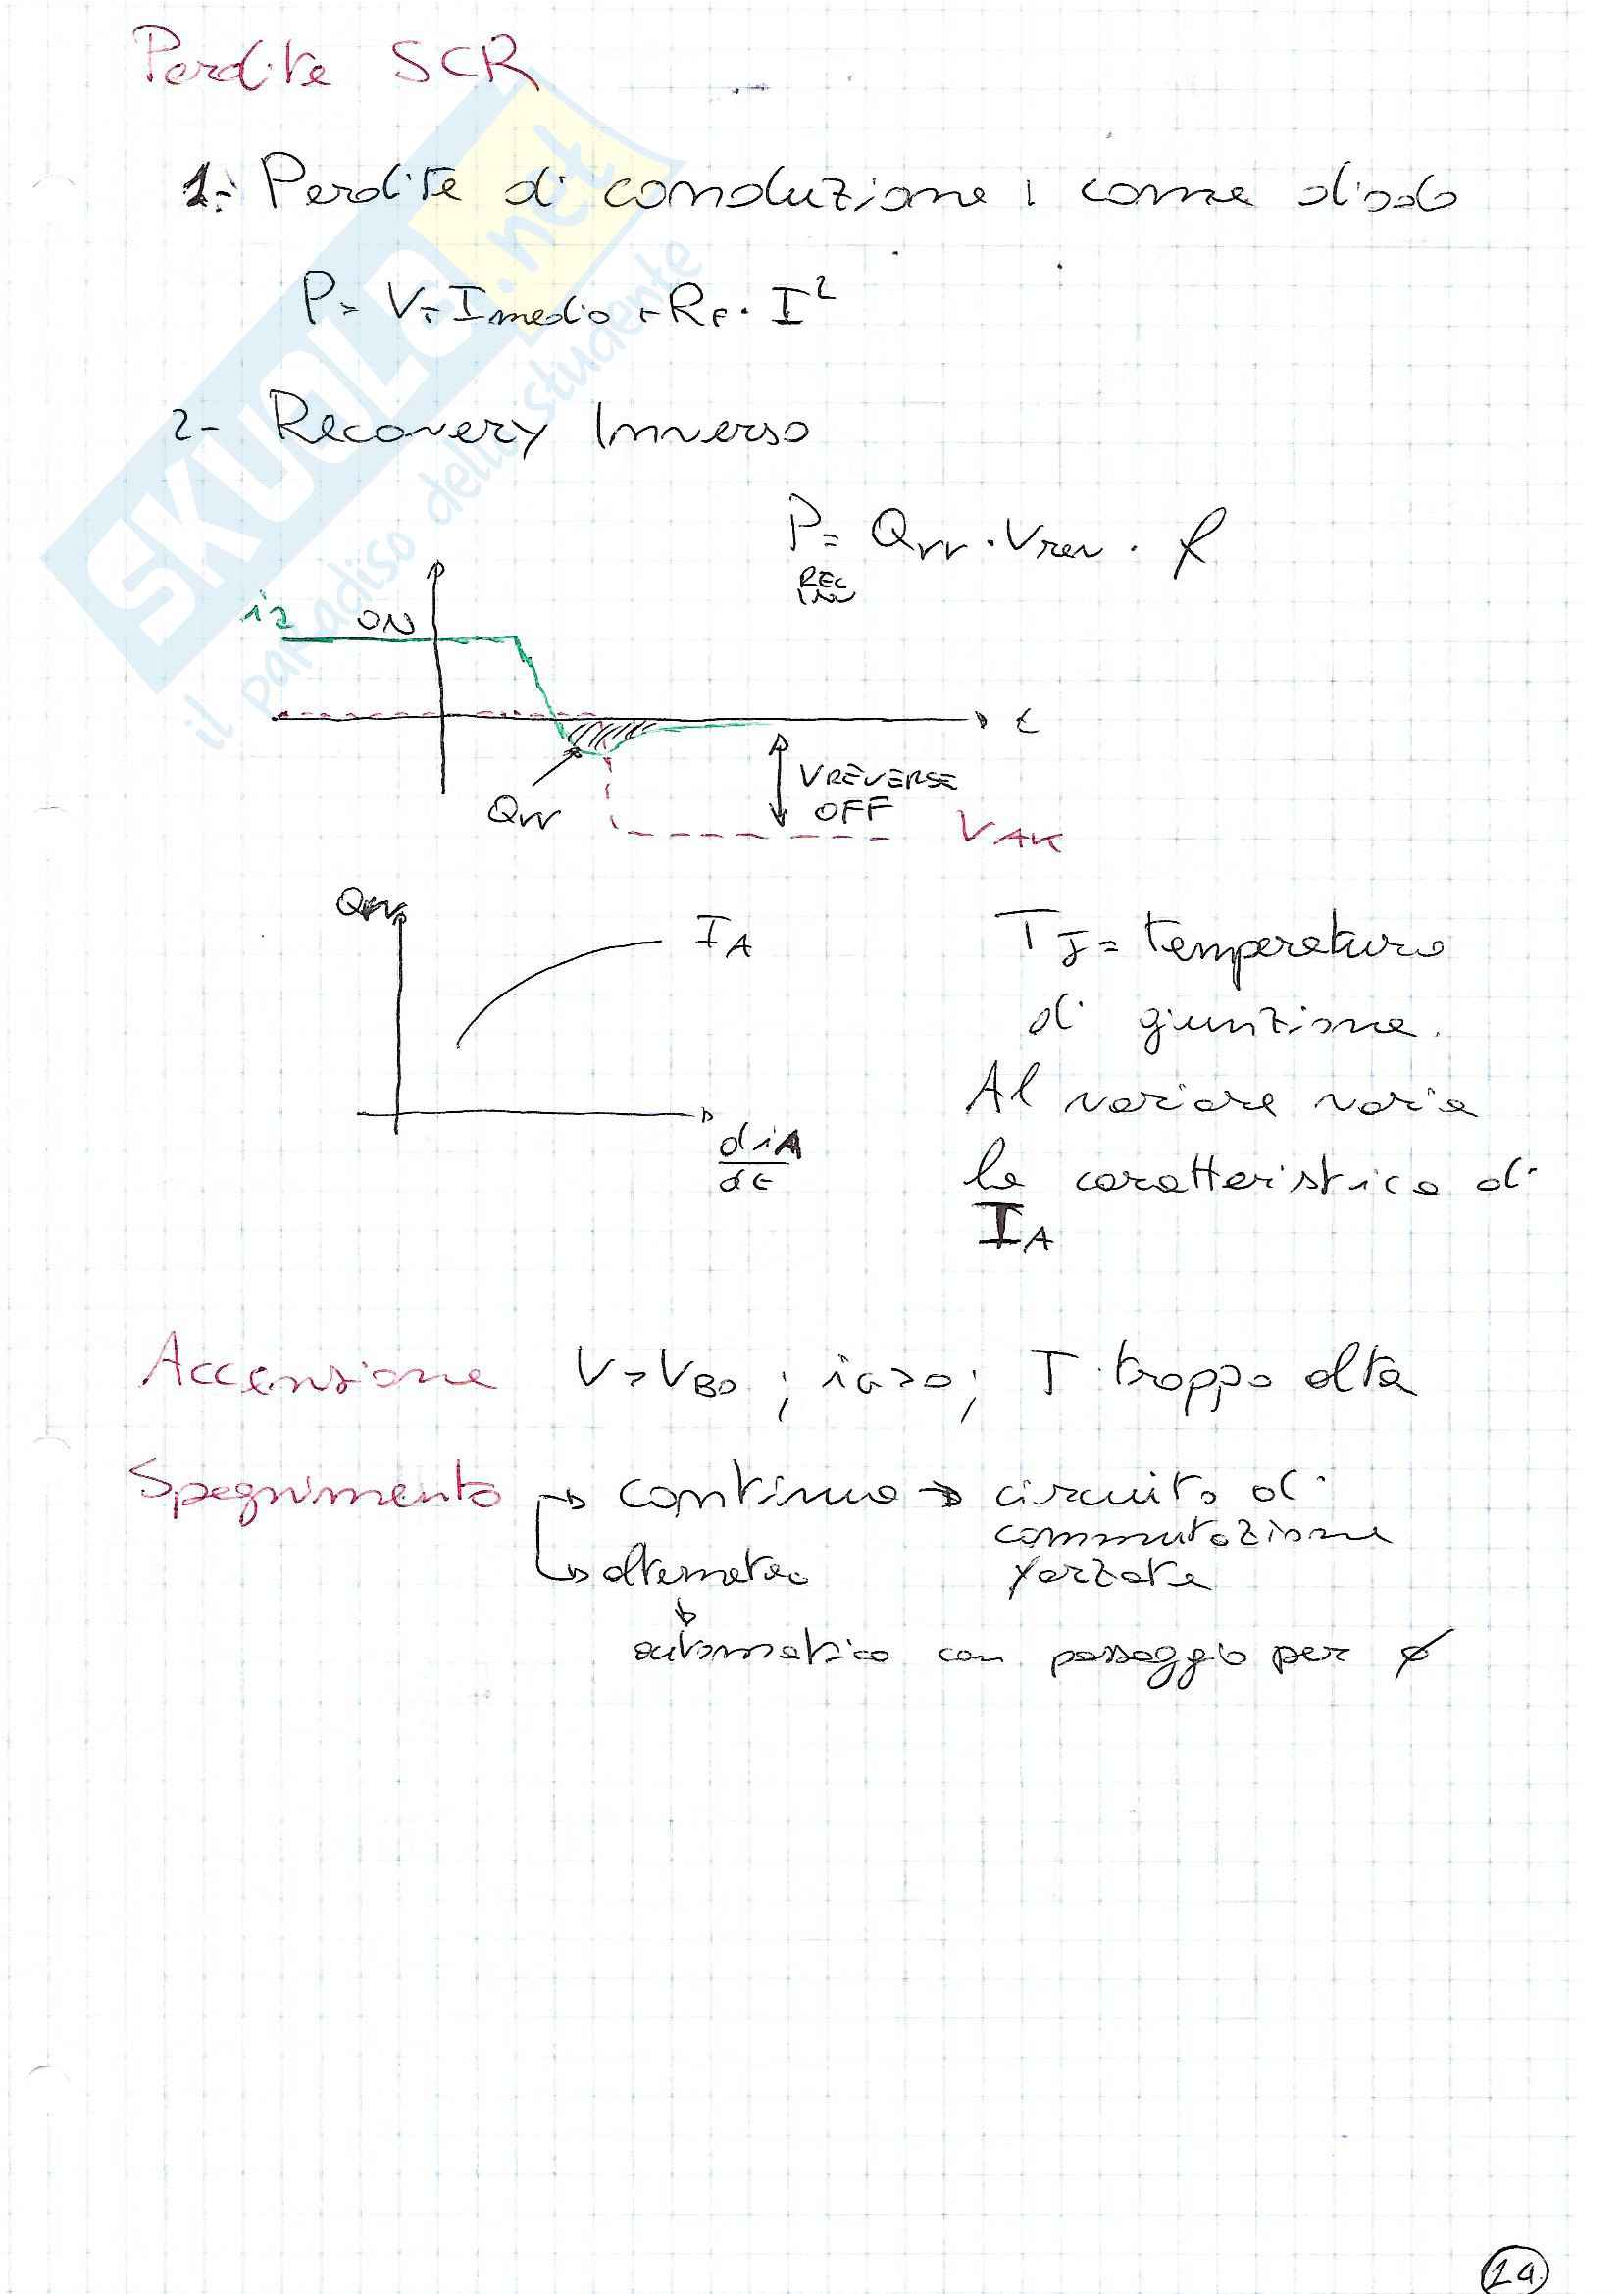 Perdite SCR
1- Perdite di conduzione: come diodo
P = VF Imedio + RF · I²
2- Recovery Inverso
P REC INV = Qrr · Vrev · f
ia ON
t
Qrr
VREVERSE
OFF
VAK
Qrr
IA
diA/dt
TJ = temperatura
di giunzione.
Al variare varia
la caratteristica di
IA
Accensione V>VBO ; iG>0; T troppo alta
Spegnimento → continua → circuito di
commutazione
forzata
↳ alternata
↓
automatico con passaggio per ø
SKUOLA.net
il paradiso dello studente